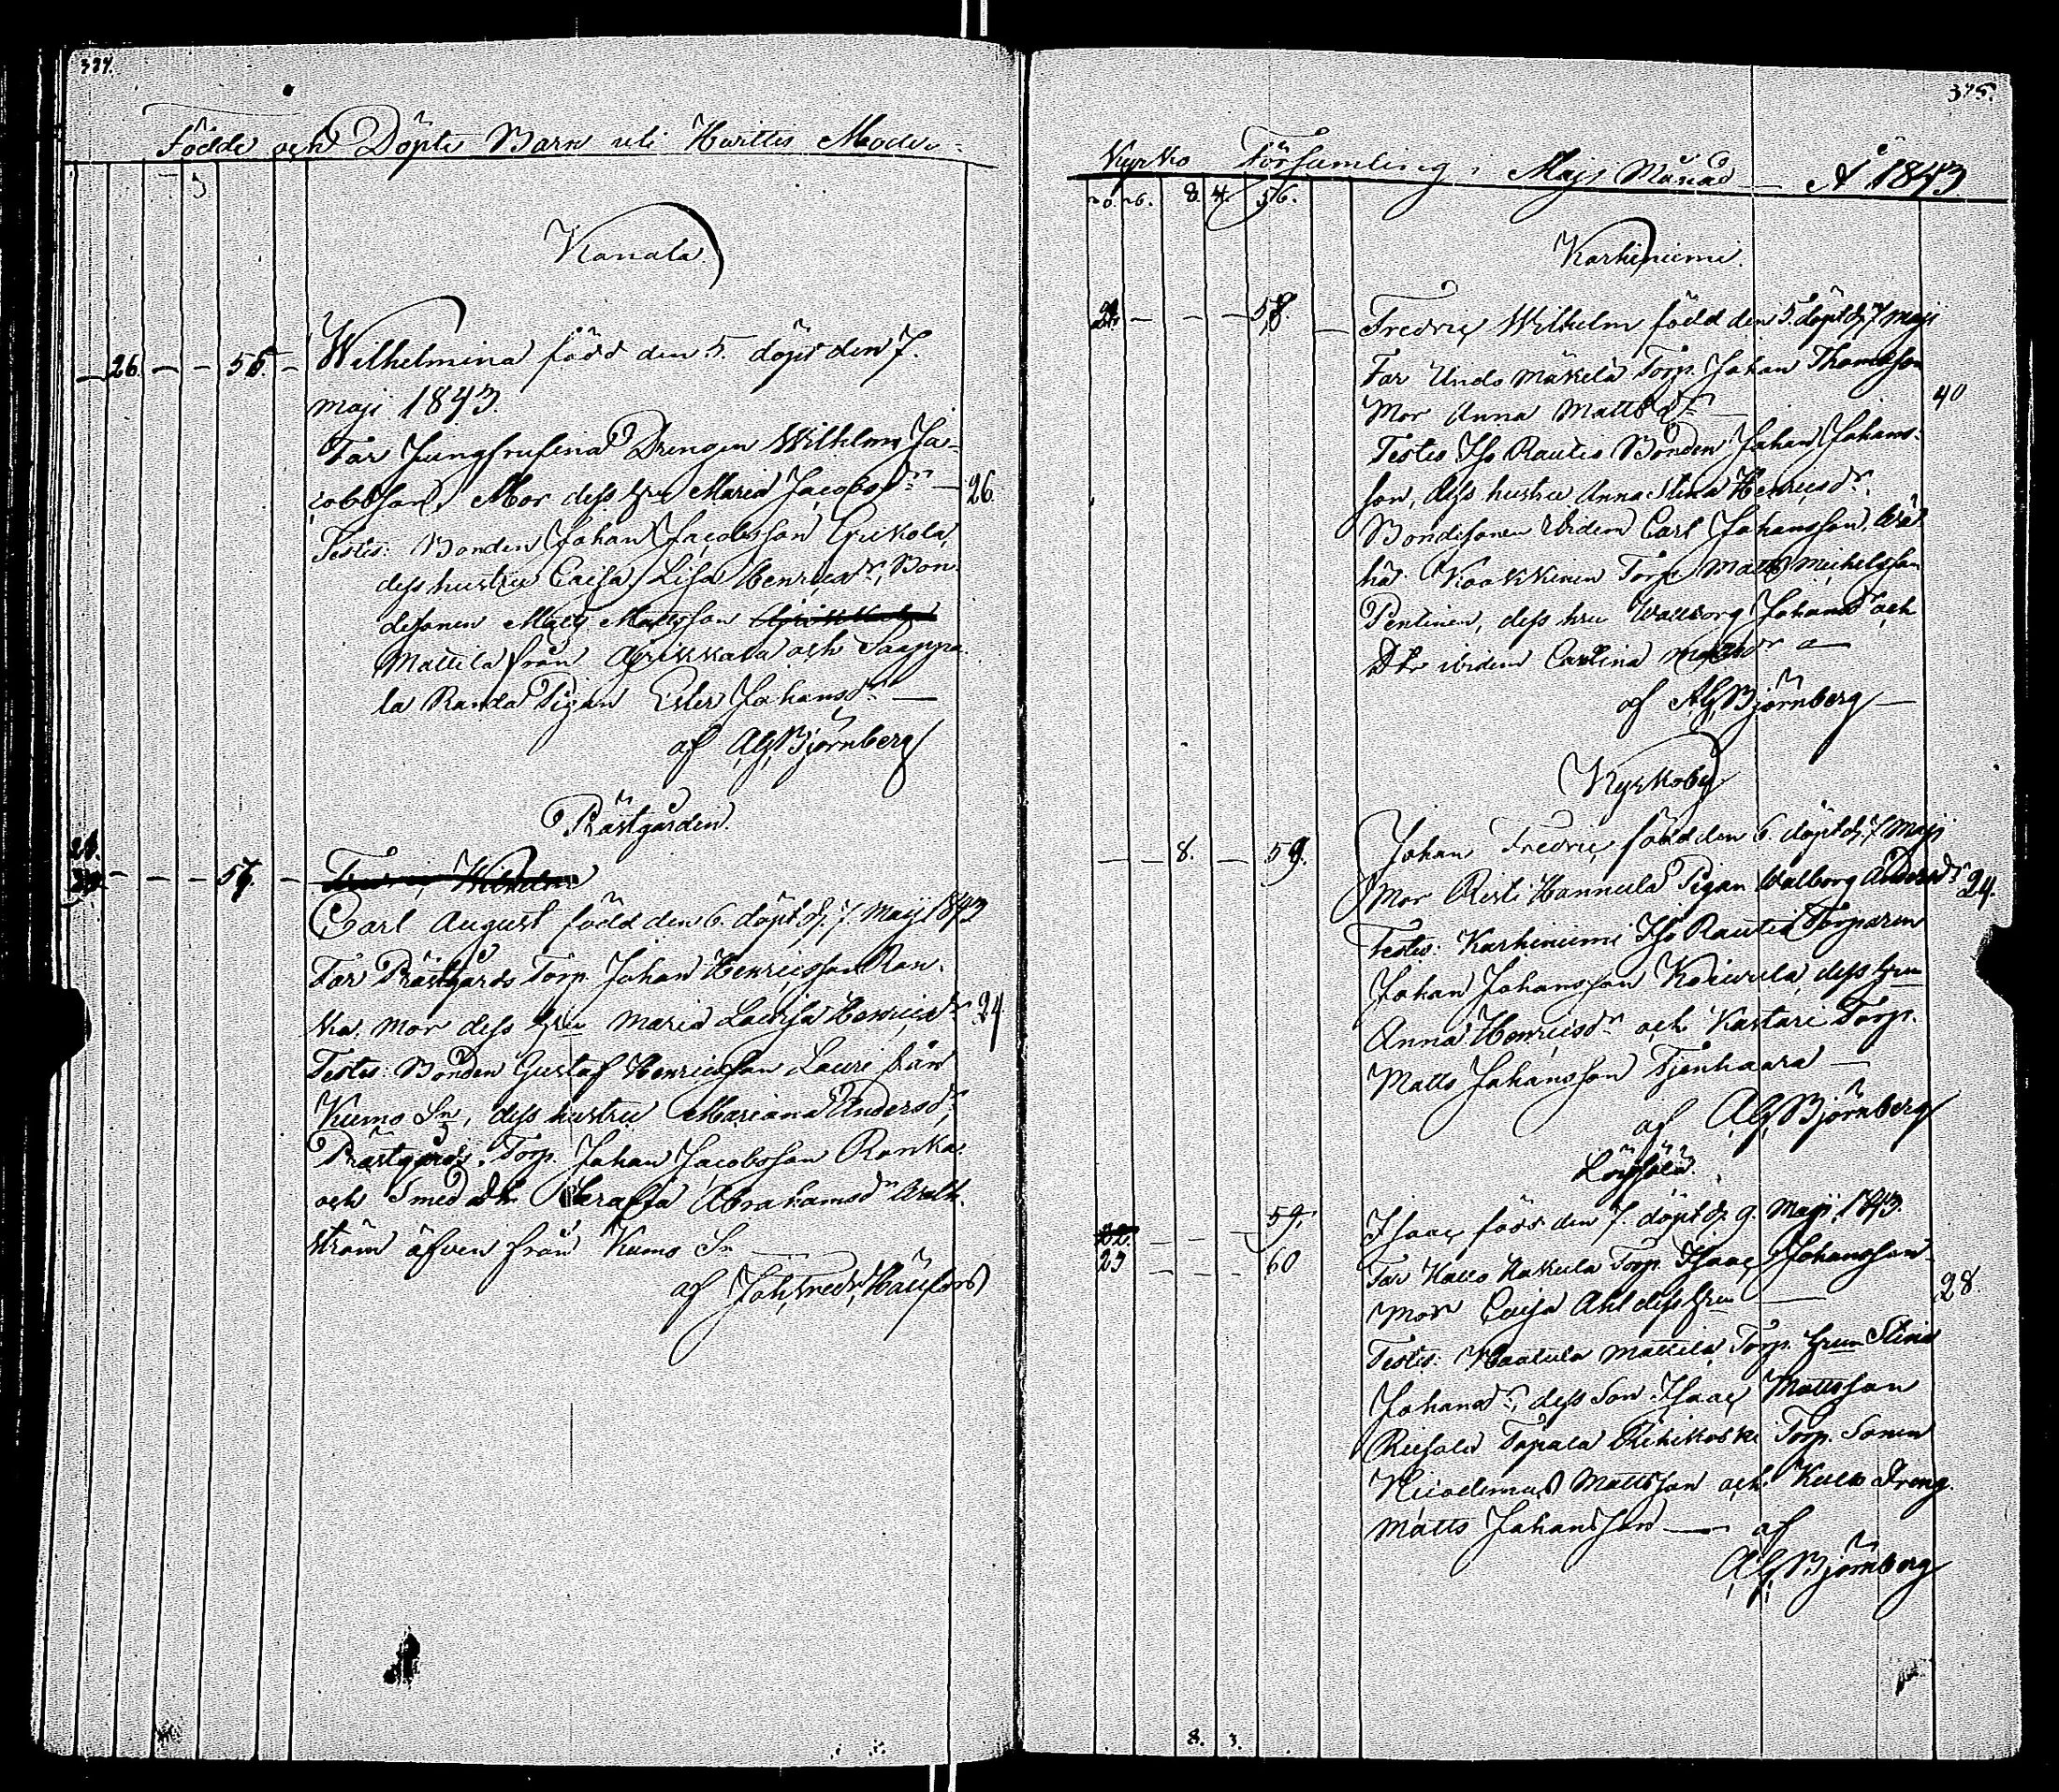 374.
Födde och Döpte Barn uti Huittis Moder-
Kanala
26. 56. Wilhelmina född den 5. döpt den 7.
Maji 1843.
Far Jungfrufina Drengen Wilhelm Ja-
cobsson, Mor dess hru Maria Jacobsdr 26
Testes: Bonden Johan Jacobsson Erickola,
dess hustru Caisa Lisa Henricsdr, Bon-
desonen Matts Mattsson
Mattila från och Saappa-
la Randa Pigan Ester Johansdr
af Björnberg
Prästgården.
57. Fredric Wilhelm
Carl August född den 6. döpt d. 7. Maij 1843
Far Prästgårds Torp. Johan Henricsson Ron-
ka, mor dess hru Maria Lovisa Henricsdr 24
Testes: Bonden Gustaf Henricsson Lauri från
Kumo Sn, dess hustru Mariana Andersdr,
Prästgårds Torp. Johan Jacobsson Ronka
och Smed Dtr Abrahamsdr
ström äfven från Kumo Sn
af Joh. Fredr.
375.
Kyrko Församling i Maji Månad A° 1843
20. 26. 8. 4. 56.
Karhiniemi.
58. Fredric Wilhelm född den 5. döpt d. 7 Maji
Far Unds Mäkelä Torp. Johan Thomasson
Mor Anna Mattsdr 40
Testes Iso Rautio Bonden Johan Johans-
son, dess hustru Anna Stina Henricsdr,
Bondesonen ibidem Carl Johansson, Wä-
hä Kaakkinen Torp. Matts Michelsson
Pentinen, dess hru Walborg Johansdr och
Dtr ibidem Carlina Mattsdr
af Björnberg
Kyrkoby
8. 59. Johan Fredric född den 6. döpt d. 7 Maji
Mor Risti Hannula Pigan Walborg Andersdr 24.
Testes: Karhiniemi Iso Rautio Torparen
Johan Johansson Koivula, dess hru
Anna Henricsdr och Kastari Torp.
Matts Johansson Tjenhaara
af Björnberg
59. Isaac född den 7. döpt d. 9. Maji 1843.
23 60 Far Torp. Isaac Johansson
Mor Caisa Ahl dess hru 28.
Testes: Mattila Torp. hrun Stina
Johansdr, dess Son Isaac Mattsson
Torp. Sonen
Nicodemus Mattsson och Dreng
Matts Johansson af
Björnberg
8. 3.